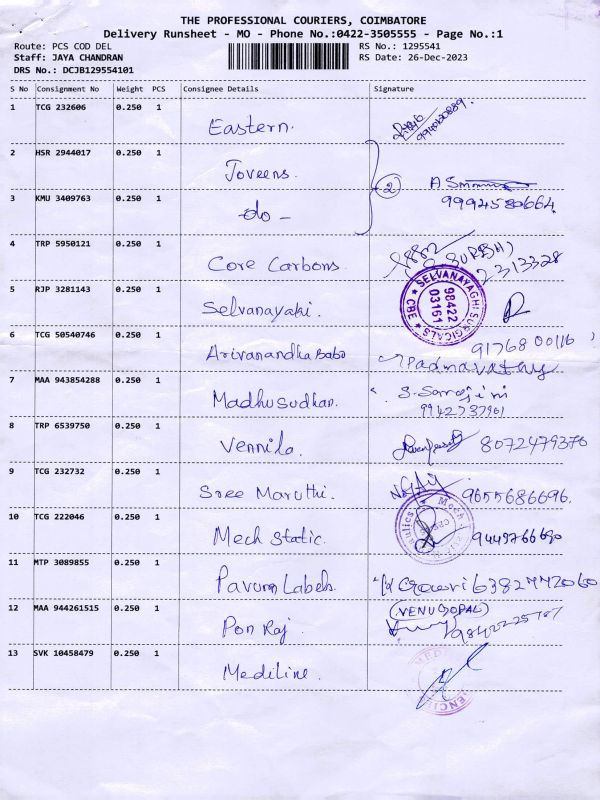 THE PROFESSIONAL COURIERS, COIMBATORE
Delivery Runsheet - MO - Phone No.:0422-3505555 - Page No.:1
Route: PCS COD DEL
RS No.: 1295541
Staff: JAYA CHANDRAN
RS Date: 26-Dec-2023
DRS No.: DCJB129554101
S No Consignment No Weight PCS Consignee Details Signature
1 TCG 232606 0.250 1 Eastern.
2 HSR 2944017 0.250 1 Joveens. 2
3 KMU 3409763 0.250 1 -do- 9994580664
4 TRP 5950121 0.250 1 Core Carbons. 2313328
5 RJP 3281143 0.250 1 Selvanayaki. SELVANAYAGHI SURGICALS CBE 98422 03161
6 TCG 50540746 0.250 1 Arivanandha babo 9176800116
Padmavathy
7 MAA 943854288 0.250 1 Madhusudhan. S. Sarojini
9942737961
8 TRP 6539750 0.250 1 Vennila. 8072479376
9 TCG 232732 0.250 1 Sree Maruthi. 9655686696.
10 TCG 222046 0.250 1 Mech Static.
11 MTP 3089855 0.250 1 Pavun Labels. Gowri 6382772060
12 MAA 944261515 0.250 1 Pon Raj. (VENUGOPAL)
13 SVK 10458479 0.250 1 Mediline.